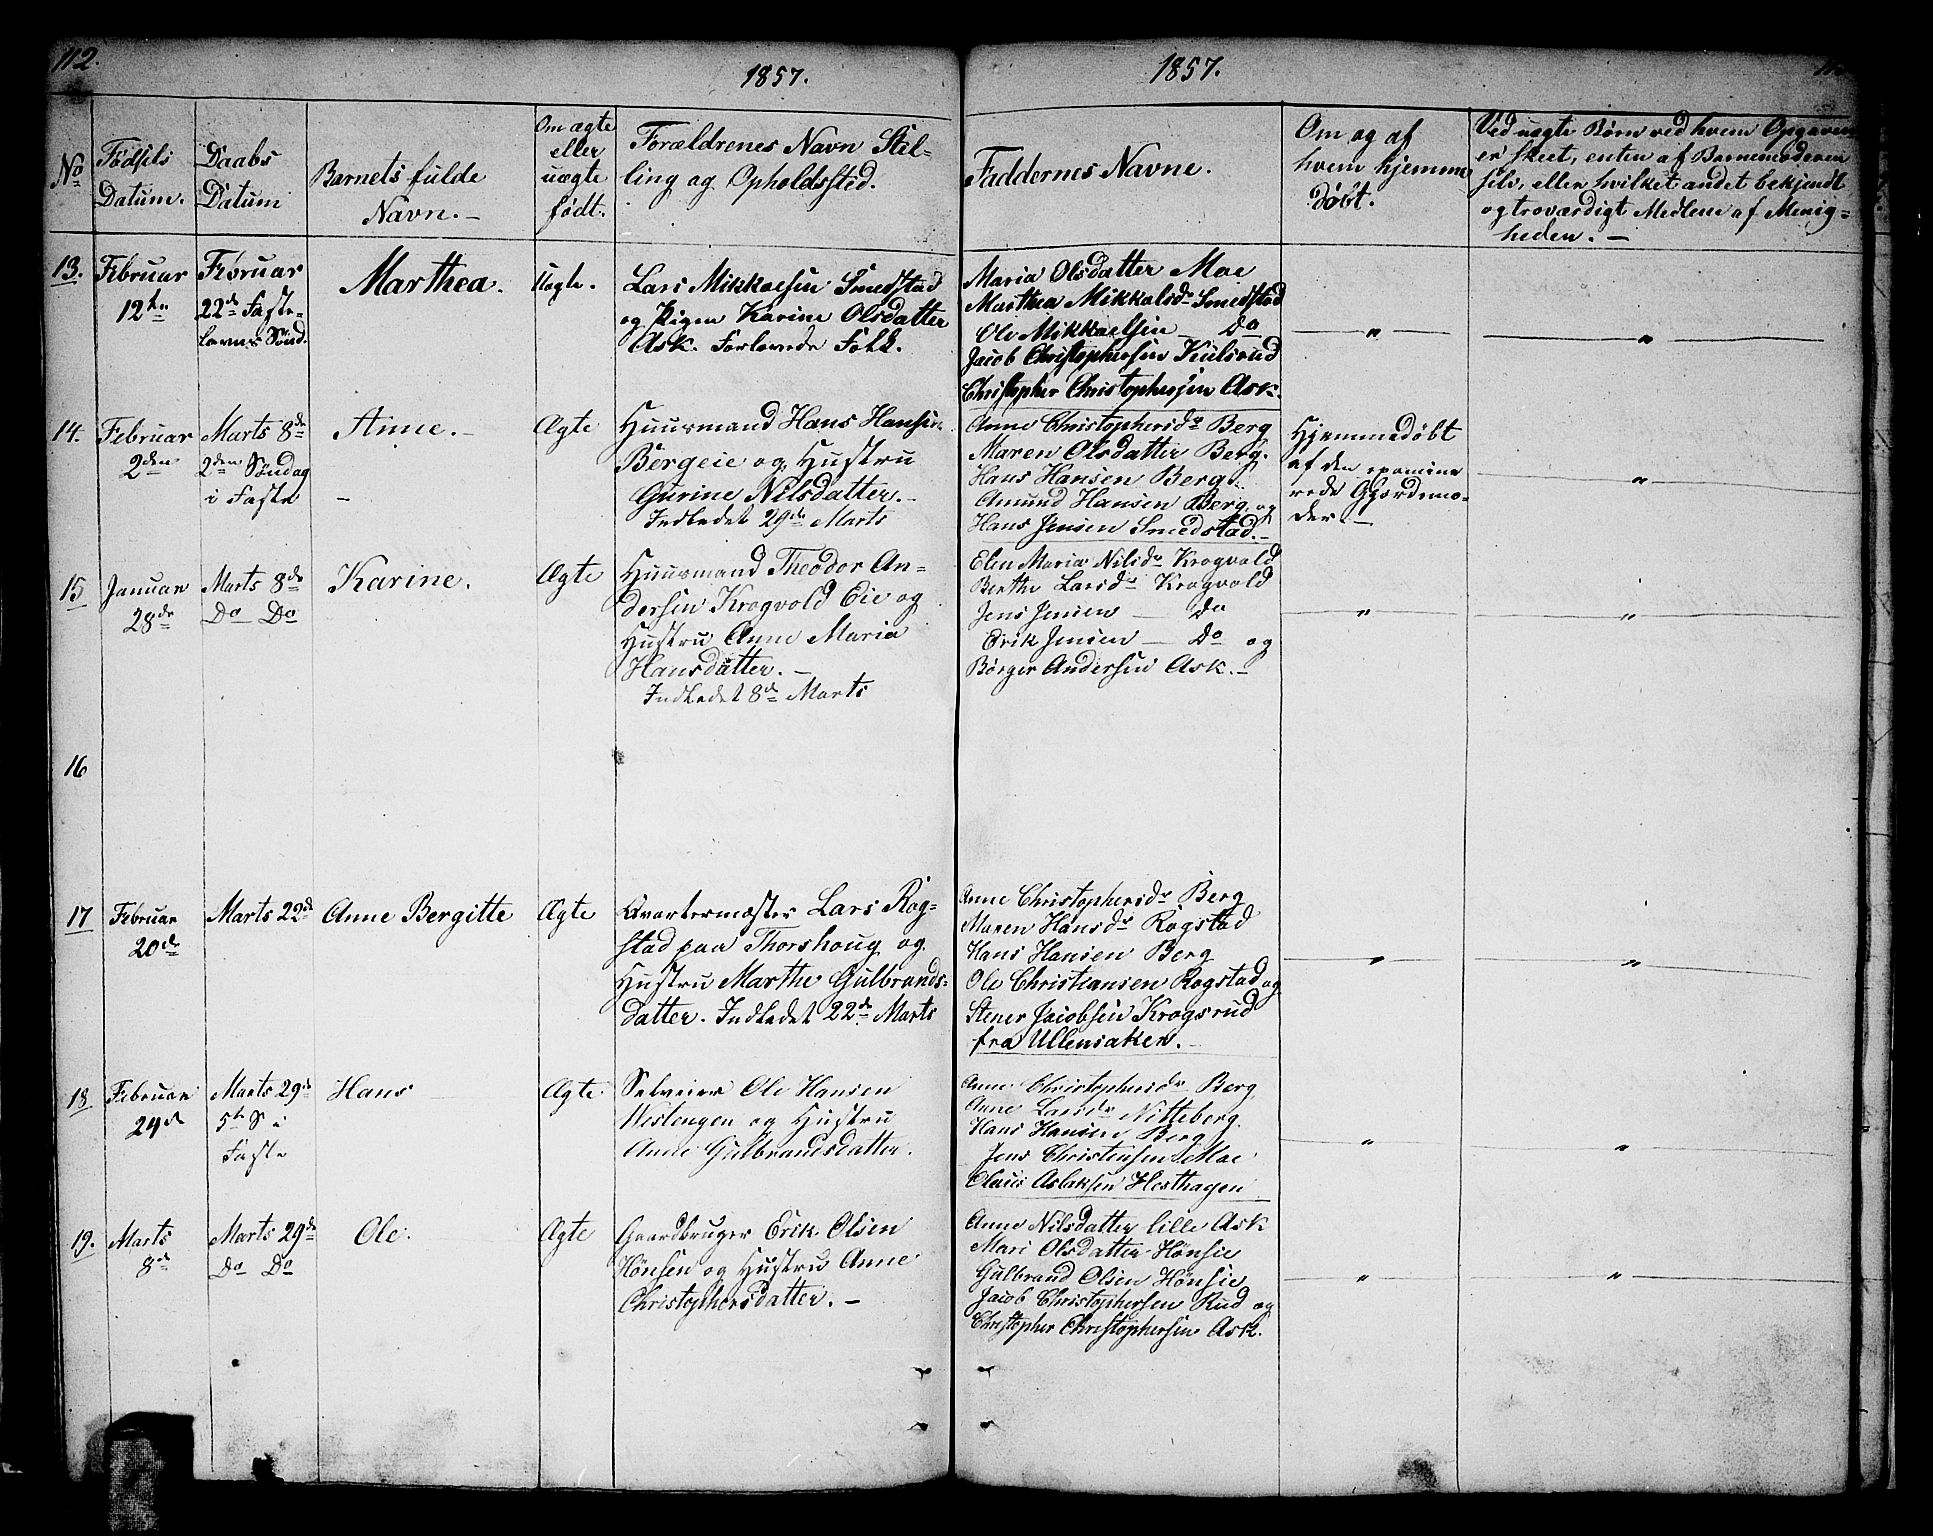 112.
1857.
No
Fødsels
Datum.
Daabs
Datum
Barnets fulde
Navn. –
Om ægte
eller
uægte
født.
Forældrenes Navn Stel-
ling og Opholdssted.
13.
Februar
12te
Februar
22de Faste-
lavns Sønd.
Marthea.
Uægte.
Lars Mikkaelsen Smedstad
og Pigen Karine Olsdatter
Ask. Forlovede Folk.
14.
Februar
2den
Marts 8de
2den Søndag
i Faste
Anne. –
Ægte
Huusmand Hans Hansen
Bergeie og Hustru
Gurine Nilsdatter. –
Indledet 29de Marts
15
Januar
28de
Marts 8de
Do Do
Karine.
Ægte
Huusmand Theodor An-
dersen Krogvold Eie og
Hustru Anne Maria
Hansdatter. –
Indledet 8de Marts
16
17
Februar
20de
Marts 22de
Anne Bergitte
Ægte
Qvartermester Lars Rog-
stad paa Thorshoug og
Hustru Marthe Gulbrands-
datter. Indledet 22de Marts
18
Februar
24de
Marts 29de
5te S i
Faste
Hans
Ægte
Selveier Ole Hansen
Westengen og Hustru
Anne Gulbrandsdatter.
19.
Marts
8de
Marts 29de
Do Do
Ole.
Ægte
Gaardbruger Erik Olsen
Hønsen og Hustru Anne
Christophersdatter. –
1857.
Faddernes Navne.
Om og af
hvem hjemme
døbt.
Ved uægte Børn ved hvem Opgaven
er skeet, enten af Barnemoderen
selv, eller hvilket andet bekjendt
og troværdigt Medlem af Menig-
heden. –
Maria Olsdatter Moe
Marthea Mikkelsdr Smedstad
Ole Mikkaelsen – Do
Jacob Christophersen Kulsrud
Christopher Christophersen Ask.
– " –
– " –
Anne Christophersdr Berg
Maren Olsdatter Berg.
Hans Hansen Berg
Amund Hansen Berg, og
Hans Jensen Smedstad. –
Hjemmedøbt
af den examine
rede Gjordemo-
der. –
– " –
Elen Maria Nilsdr Krogvold
Berthe Larsdr Krogvold
Jens Jensen – Do
Erik Jensen – Do og
Børger Andersen Ask. –
"
– " –
Anne Christophersdr Berg
Maren Hansdr Rogstad
Hans Hansen Berg
Ole Christiansen Rogstad og
Stener Jacobsen Krogsrud
fra Ullensaker. –
– " –
– " –
Anne Christophersdr Berg
Anne Larsdr Nitteberg.
Hans Hansen Berg
Jens Christensen Moe
Olaus Aslaksen Hesthagen
– " –
– " –
Anne Nilsdatter lille Ask
Mari Olsdatter Hønsie
Gulbrand Olsen Hønsie
Jacob Christophersen Rud og
Christopher Christophersen Ask.
– " –
– " –